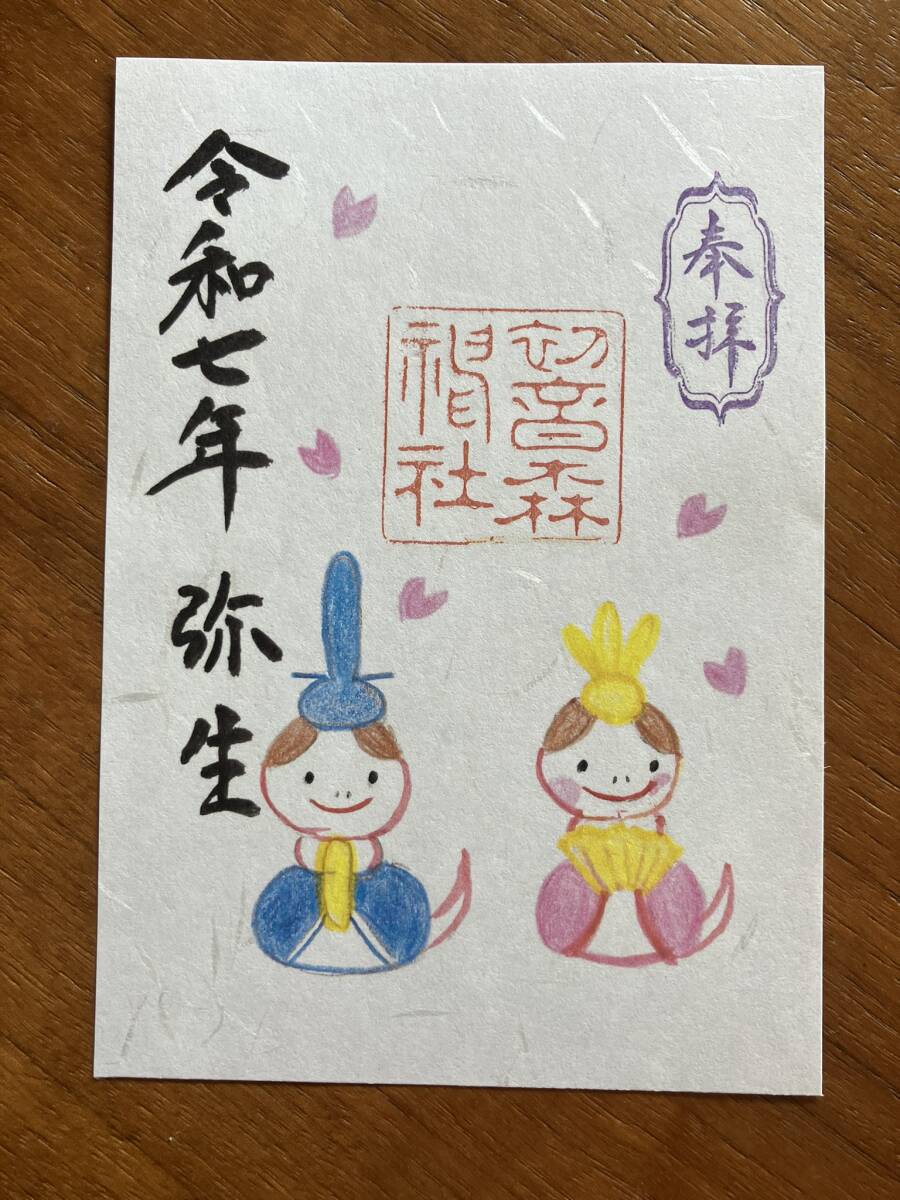 奉拝
初音森
神社
令和七年 弥生